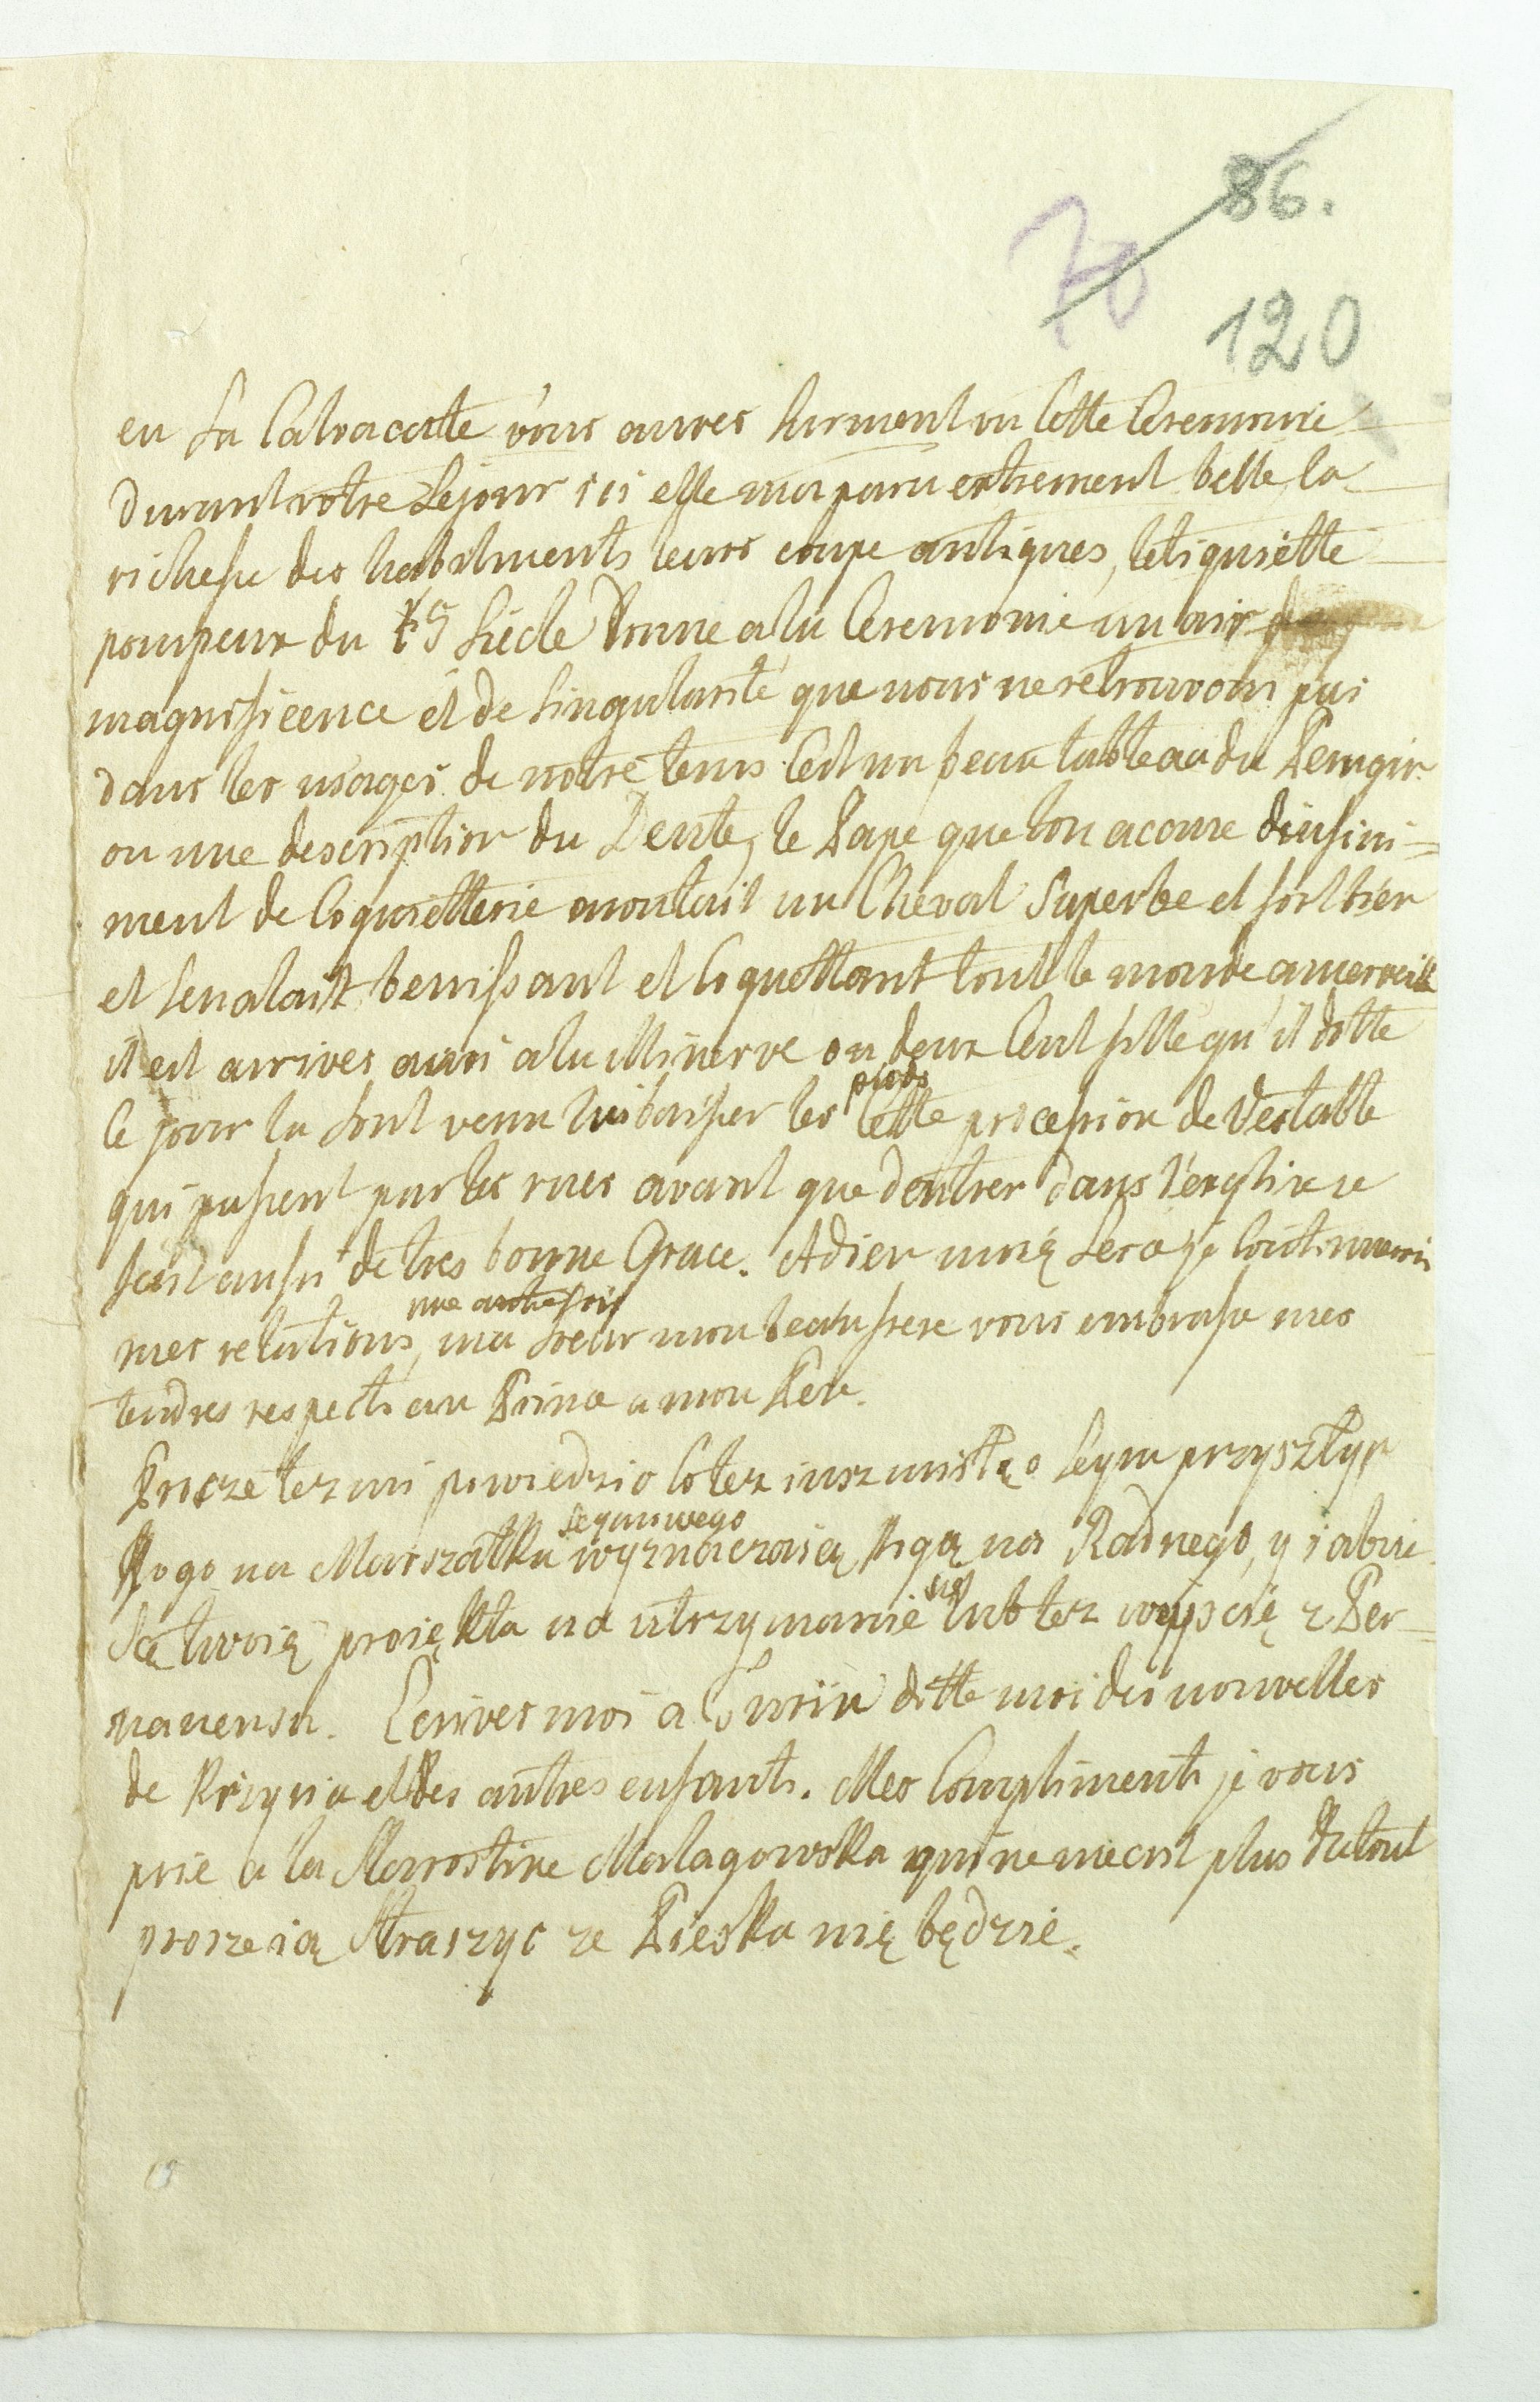 86.
70
120
en sa Calvacate vous aures surment vu Cette Ceremonie
durant votre Sejour ici elle ma paru extrement belle, la
richesse des habilments leurs coupe antiques, letiquiette
pompeux du 15 Siecle donne a la Ceremonie un air de
magnificence et de Singularité que nous ne retrouvons pas
dans les usages de notre tems Cest un beau tableau du Perugin
ou une description du Dente, le Pape que lon acouse dinfini=
ment de Coquietterie montait un Cheval Superbe et fort bien
et senalait benissant et Coquettant tout le monde a merveille
il est arrives ainsi a la Minerve ou deux Cent fille qu'il dotte
ce jour la sont venu lui baisser les pieds Cette procession de Vestalle
qui passent par les rues avant que dentrer dans l'eglise se
fait aussi de tres bonne Grace. Adieu unię Serce je Continuerai
mes relations une autre fois, ma Soeur mon beau frere vous embrasse mes
tendres respects au Prince a mon Pere.
Prosze tez mi powiedzio Co tez iusz mislą o Seym przyszłyn
Kogo na Marszałka Seymowego wyznaczaią, Kogą na Radnego, y iakie
Są twoię proiękta na utrzymanie się lub tez wyjscię z Per=
manensu. Ecrives moi a Turin ditte moi des nouvelles
de Krzysia et des autres enfants. Mes Compliments je vous
prie a la Starostine Malagowska qui ne mecrit plus du tout
prosze ią Straszyc ze Pieska nię będzie.